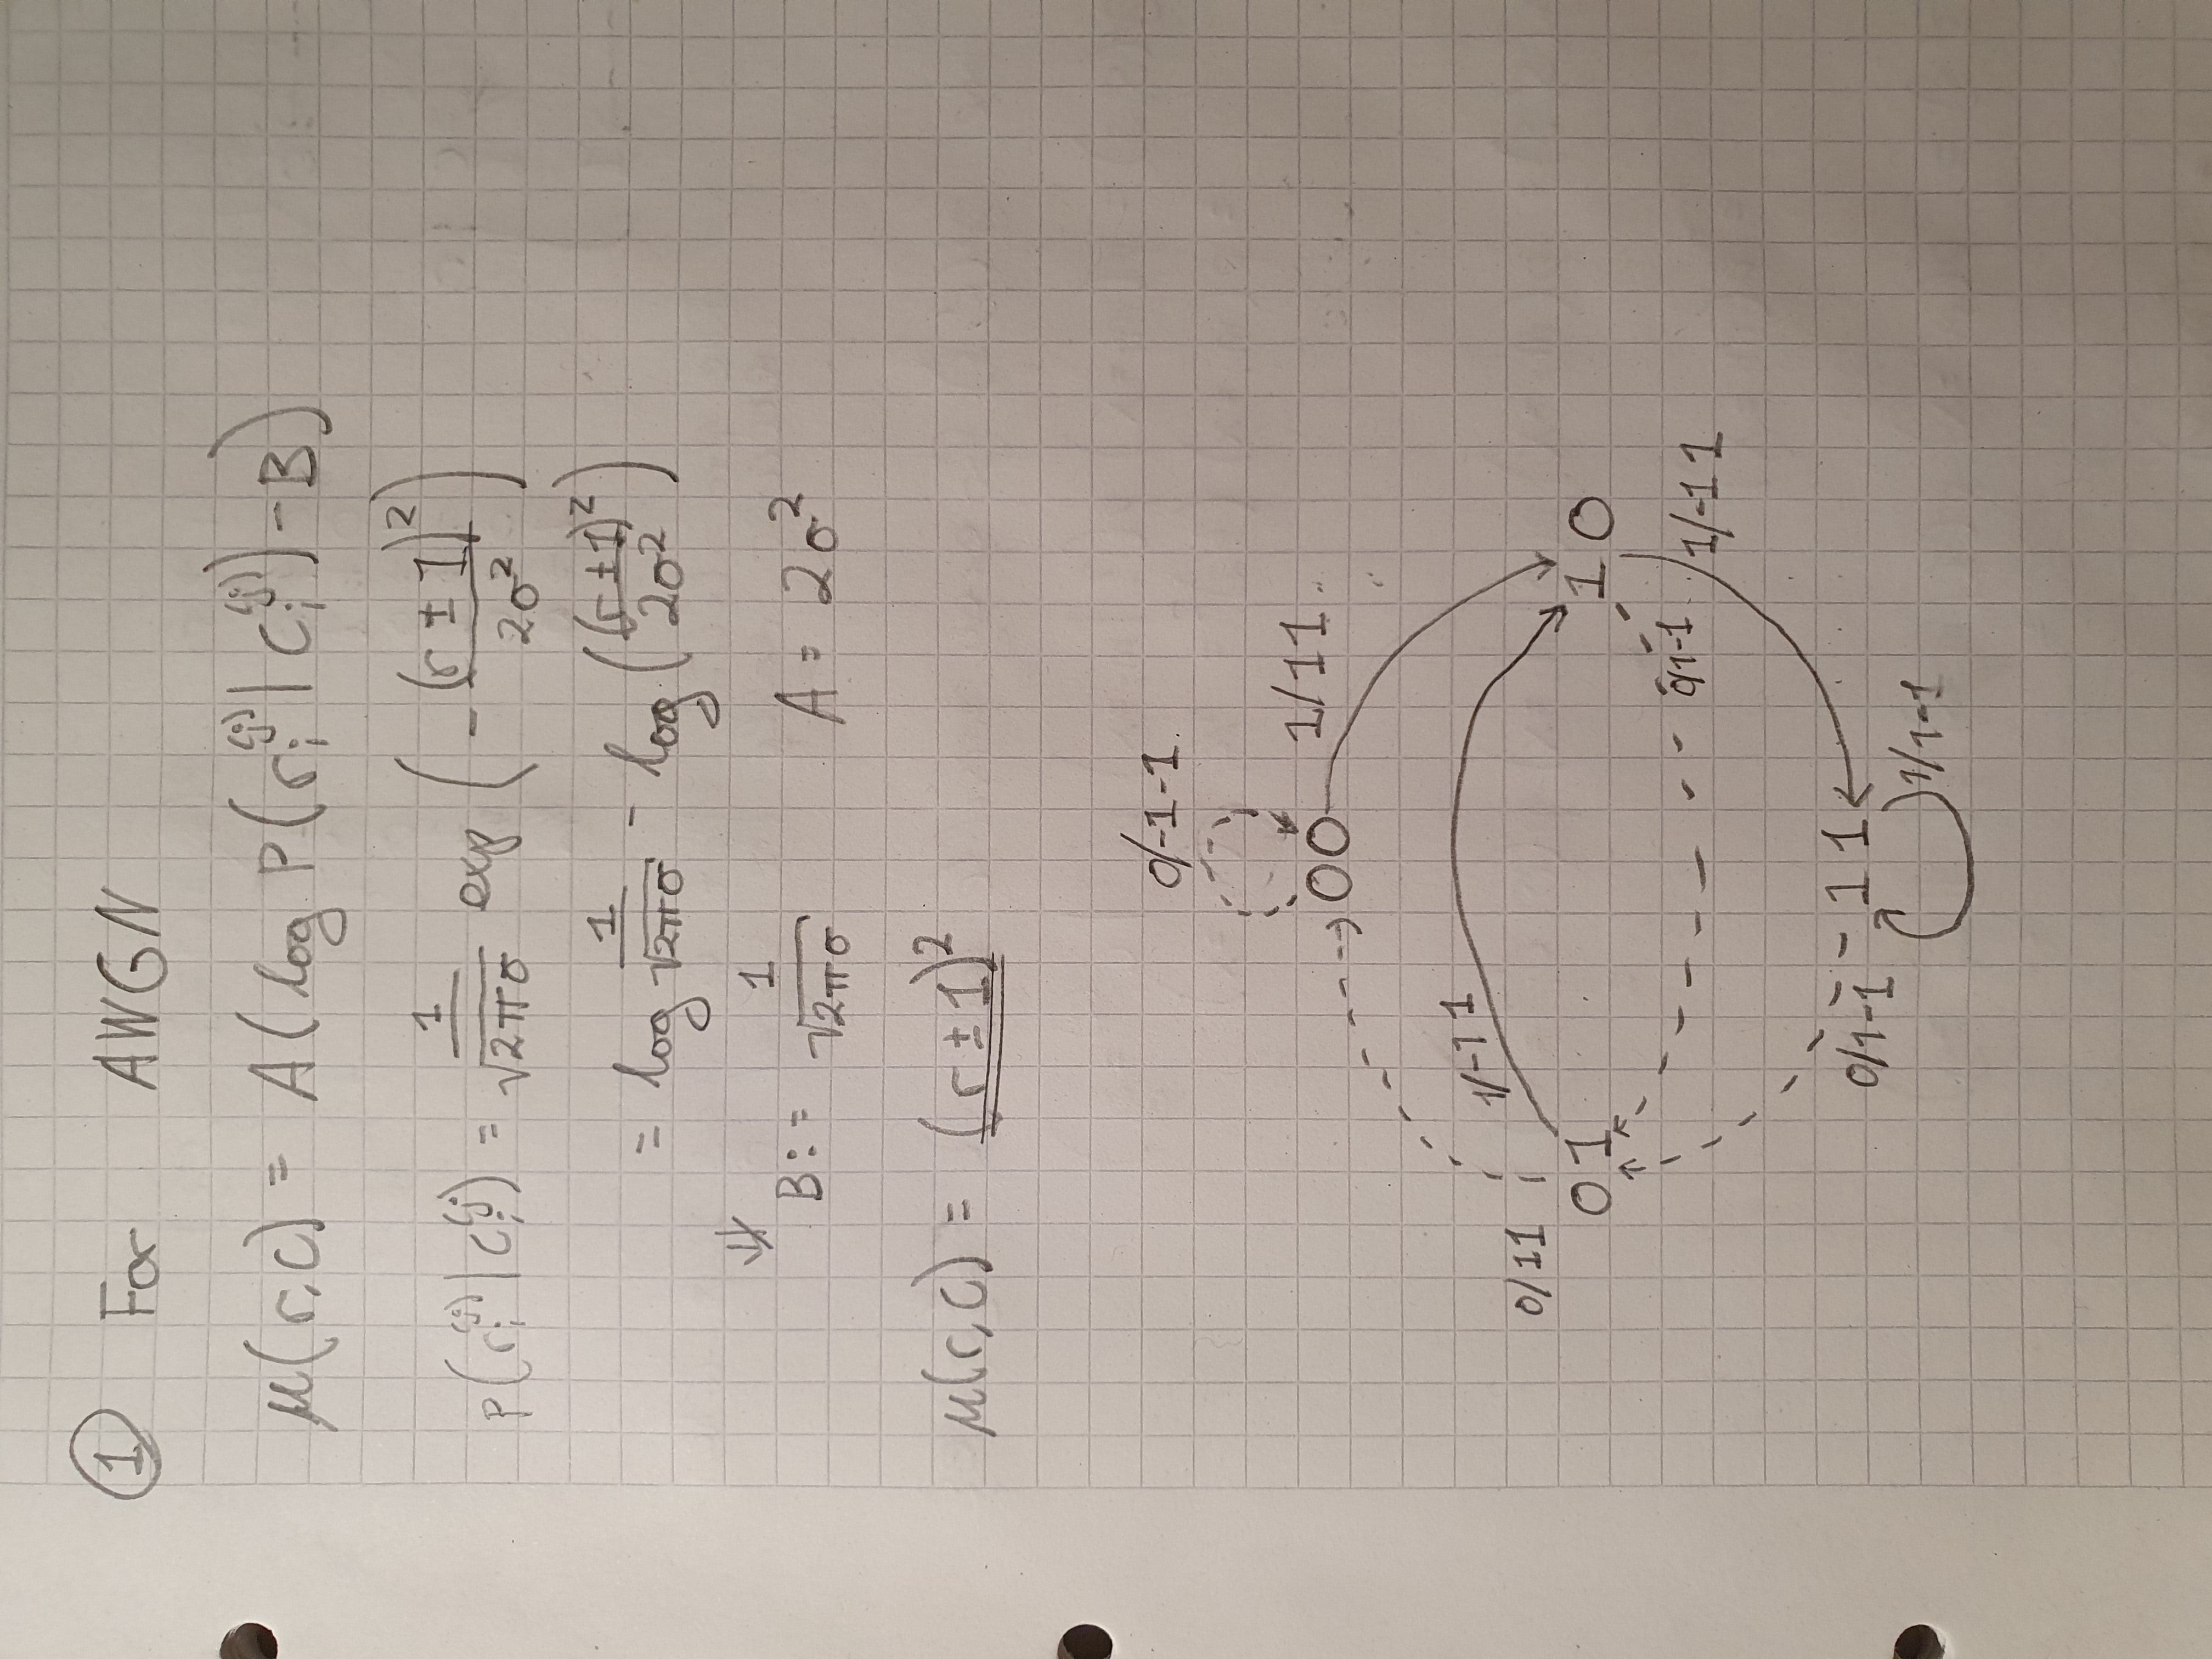 ① For AWGN
μ(r,c) = A(log P(r_i^(j) | c_i^(j)) - B)
P(r_i^(j) | c_i^(j)) = 1/√(2πσ) exp(-(r ± 1)²/2σ²)
= log 1/√(2πσ) - log((r ± 1)²/2σ²)
⇓ B := 1/√(2πσ) A = 2σ²
μ(r,c) = (r ± 1)²
0/-1-1
00 1/11
1/-11
0/11
01 10
0/1-1 1/-11
0/1-1 11
1/1-1